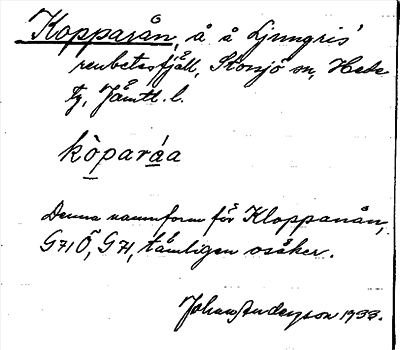 Kopparån, å å Ljungris'
renbetesfjäll, Storsjö sn, Hede
tg, Jämtl. l.
kòparáa
Denna namnform för Kloppanån,
G71Ö, G71, tämligen osäker.
Johan Anderson 1933.